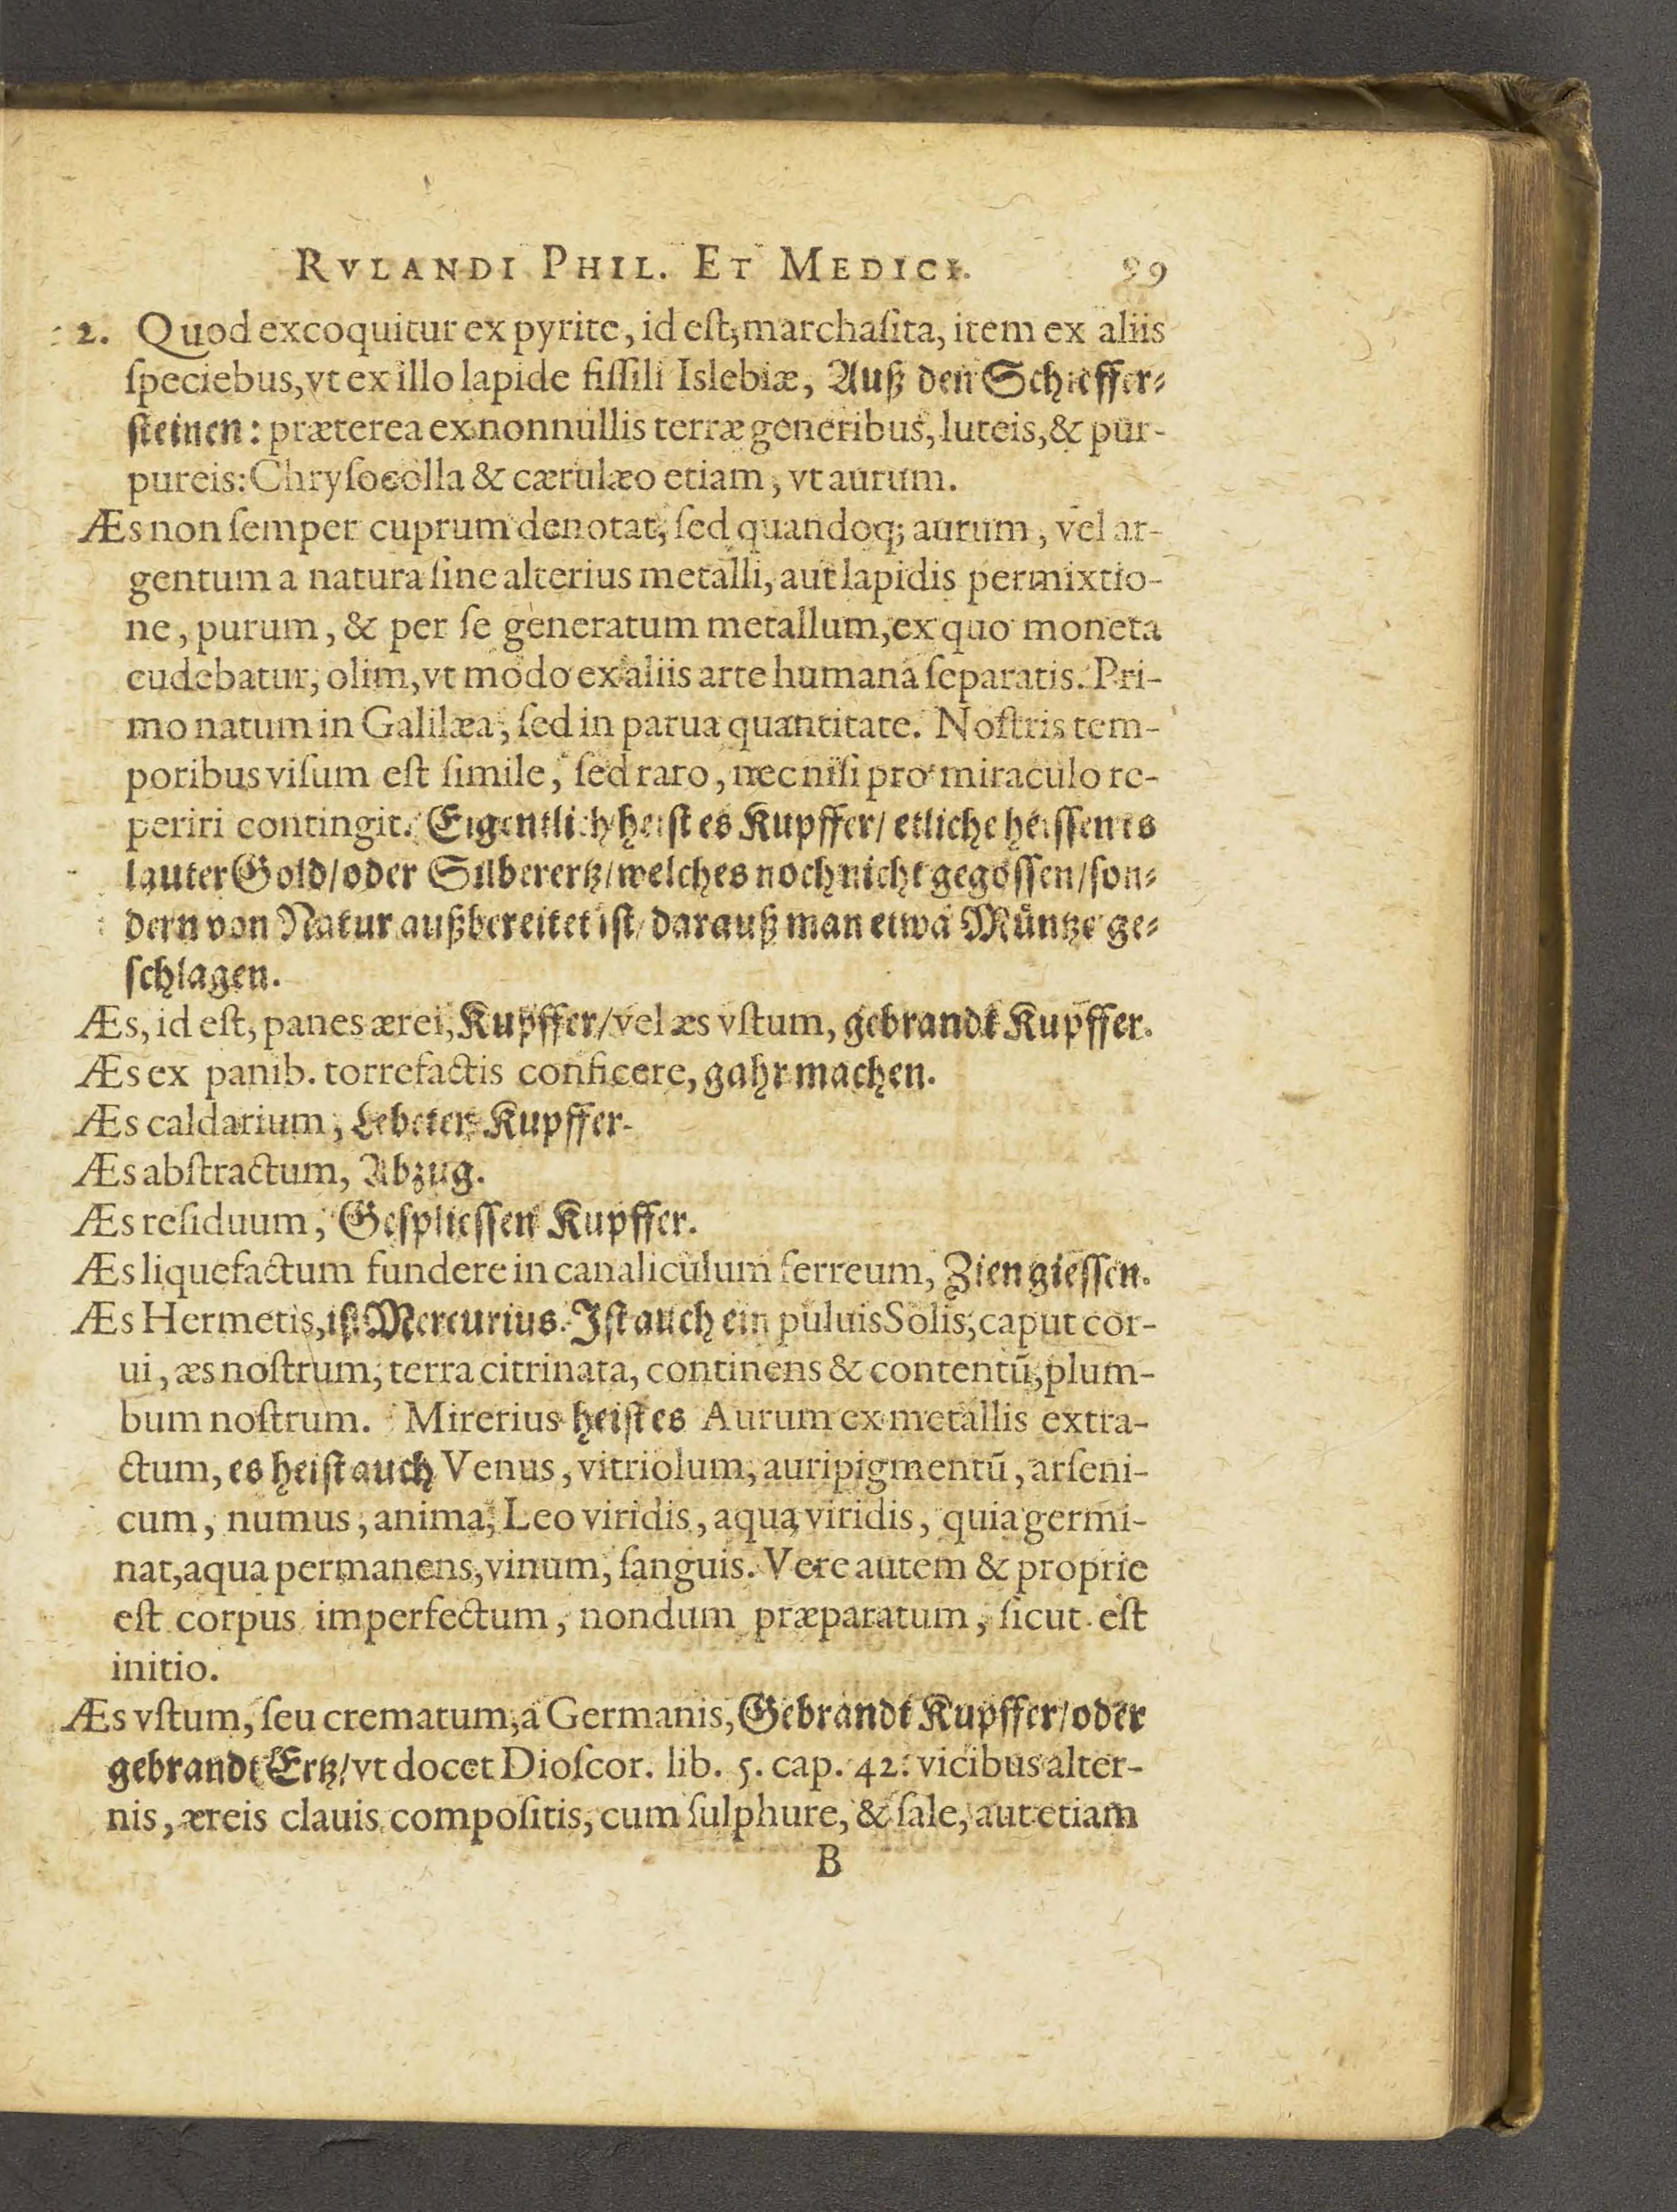 RVLANDI PHIL. ET MEDICI. 99
2. Quod excoquitur ex pyrite, id eſt, marchaſita, item ex aliis
ſpeciebus, vt ex illo lapide fiſſili Islebiæ, Auß den Schieffer⸗
ſteinen: præterea ex nonnullis terræ generibus, luteis, & pur-
pureis: Chryſocolla & cærulæo etiam, vt aurum.
Æs non ſemper cuprum denotat, ſed quandoq; aurum, vel ar-
gentum a natura ſine alterius metalli, aut lapidis permixtio-
ne, purum, & per ſe generatum metallum, ex quo moneta
cudebatur, olim, vt modo ex aliis arte humana ſeparatis. Pri-
mo natum in Galilæa, ſed in parua quantitate. Noſtris tem-
poribus viſum eſt ſimile, ſed raro, nec niſi pro miraculo re-
periri contingit. Eigentlich heiſt es Kupffer/ etliche heiſſen es
lauter Gold/ oder Silberertz/ welches noch nicht gegoſſen/ ſon⸗
dern von Natur außbereitet iſt/ darauß man etwa Müntze ge⸗
ſchlagen.
Æs, id eſt, panes ærei, Kupffer/ vel æs vſtum, gebrandt Kupffer.
Æs ex panib. torrefactis conficere, gahr machen.
Æs caldarium, Lebeter⸗Kupffer.
Æs abſtractum, Abzug.
Æs reſiduum, Geſplieſſen Kupffer.
Æs liquefactum fundere in canaliculum ferreum, Zien gieſſen.
Æs Hermetis, iſt Mercurius. Iſt auch ein puluis Solis, caput cor-
ui, æs noſtrum, terra citrinata, continens & contentū, plum-
bum noſtrum. Mirerius heiſt es Aurum ex metallis extra-
ctum, es heiſt auch Venus, vitriolum, auripigmentū, arſeni-
cum, numus, anima, Leo viridis, aqua viridis, quia germi-
nat, aqua permanens, vinum, ſanguis. Vere autem & proprie
eſt corpus imperfectum, nondum præparatum, ſicut eſt
initio.
Æs vſtum, ſeu crematum, a Germanis, Gebrandt Kupffer/ oder
gebrandt Ertz/ vt docet Dioſcor. lib. 5. cap. 42. vicibus alter-
nis, æreis clauis compoſitis, cum ſulphure, & ſale, aut etiam
B